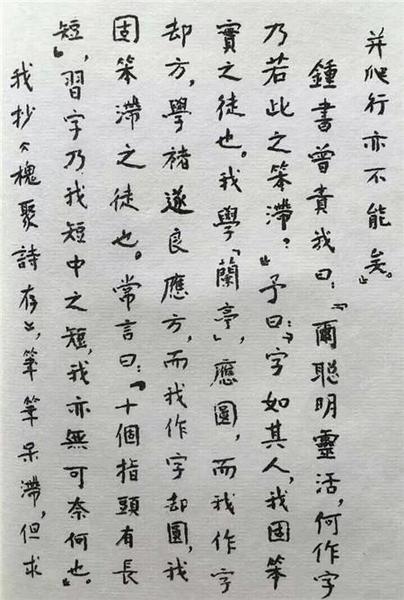 并爬行亦不能矣』。
鍾書曾責我曰：『爾聰明靈活，何作字
乃若此之笨滯？』予曰：『字如其人，我固笨
實之徒也。我學「蘭亭」，應圓，而我作字
却方，學褚遂良應方，而我作字却圓，我
固笨滯之徒也。常言曰：『十個指頭有長
短』，習字乃我短中之短，我亦無可奈何也。』
我抄《槐聚詩存》，筆筆呆滯，但求